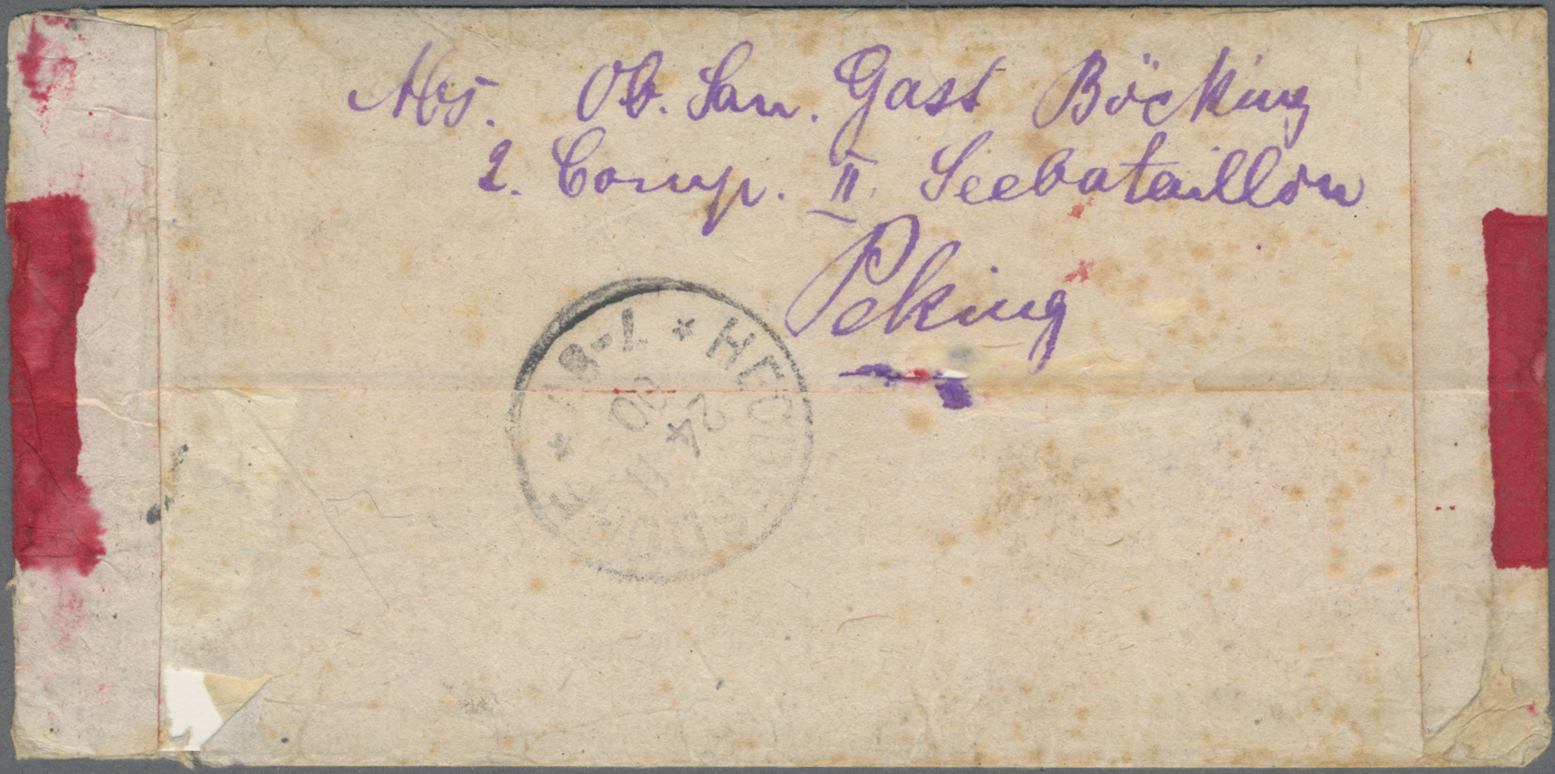 Abs. Ob. San. Gast Böcking
2. Comp. II. Seebataillon
Peking
7-8V
24
11
00